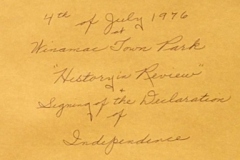 4th of July 1976
at
Winamac Town Park
"History in Review"
&
Signing of the Declaration
of
Independence